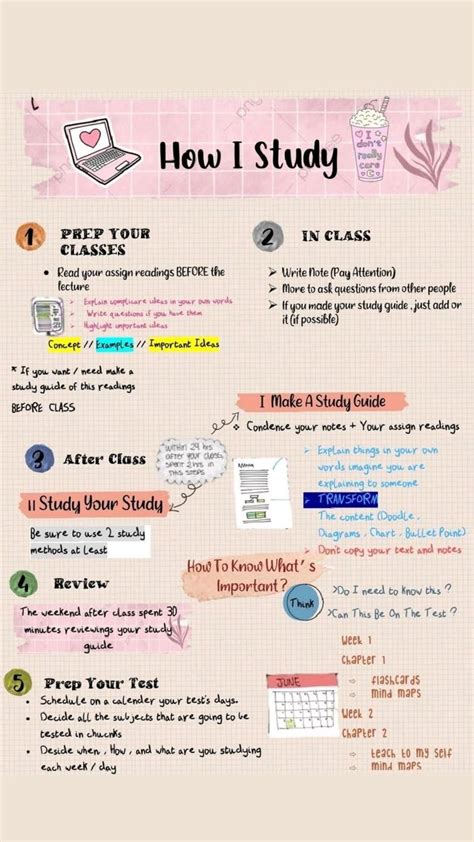 How I Study
I don't really care
1 PREP YOUR
CLASSES
• Read your assign readings BEFORE the
lecture
➤ Explain complicare ideas in your own words
➤ Write questions if you have them
➤ Highlight important ideas
Concept // Examples // Important Ideas
* If you want / need make a
study guide of this readings
BEFORE CLASS
2 IN CLASS
➤ Write Note (Pay Attention)
➤ More to ask questions from other people
➤ If you made your study guide , just add or
it (if possible)
3 After Class
within 24 hrs
after your class
spent 2 hrs in
this steps
I Make A Study Guide
❖ Condence your notes + Your assign readings
➤ Explain things in your own
words imagine you are
explaining to someone
➤ TRANSFORM
The content (Doodle ,
Diagrams , Chart , Bullet Point)
➤ Don't copy your text and notes
II Study Your Study
Be sure to use 2 study
methods at Least
How To Know What's
Important ?
Think
>Do I need to Know this ?
>Can This Be On The Test ?
4 Review
The weekend after class spent 30
minutes reviewings your study
guide
5 Prep Your Test
• Schedule on a calender your test's days.
• Decide all the subjects that are going to be
tested in chucnks
• Deside when , How , and what are you studying
each week / day
JUNE
Week 1
Chapter 1
⇨ flashcards
⇨ mind maps
Week 2
Chapter 2
⇨ teach to my self
⇨ mind maps